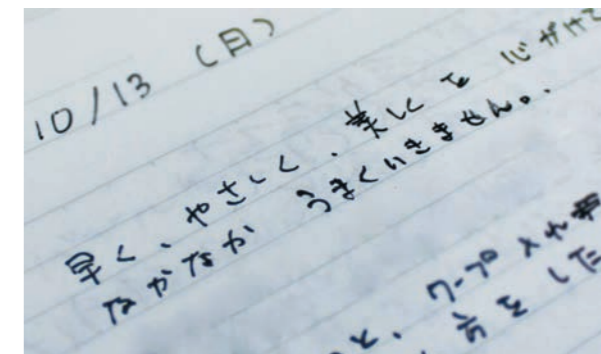 10/13 (月)
早く、やさしく、美しくを心がけて
なかなかうまくいきません。
と、ワープ入れ
方をした